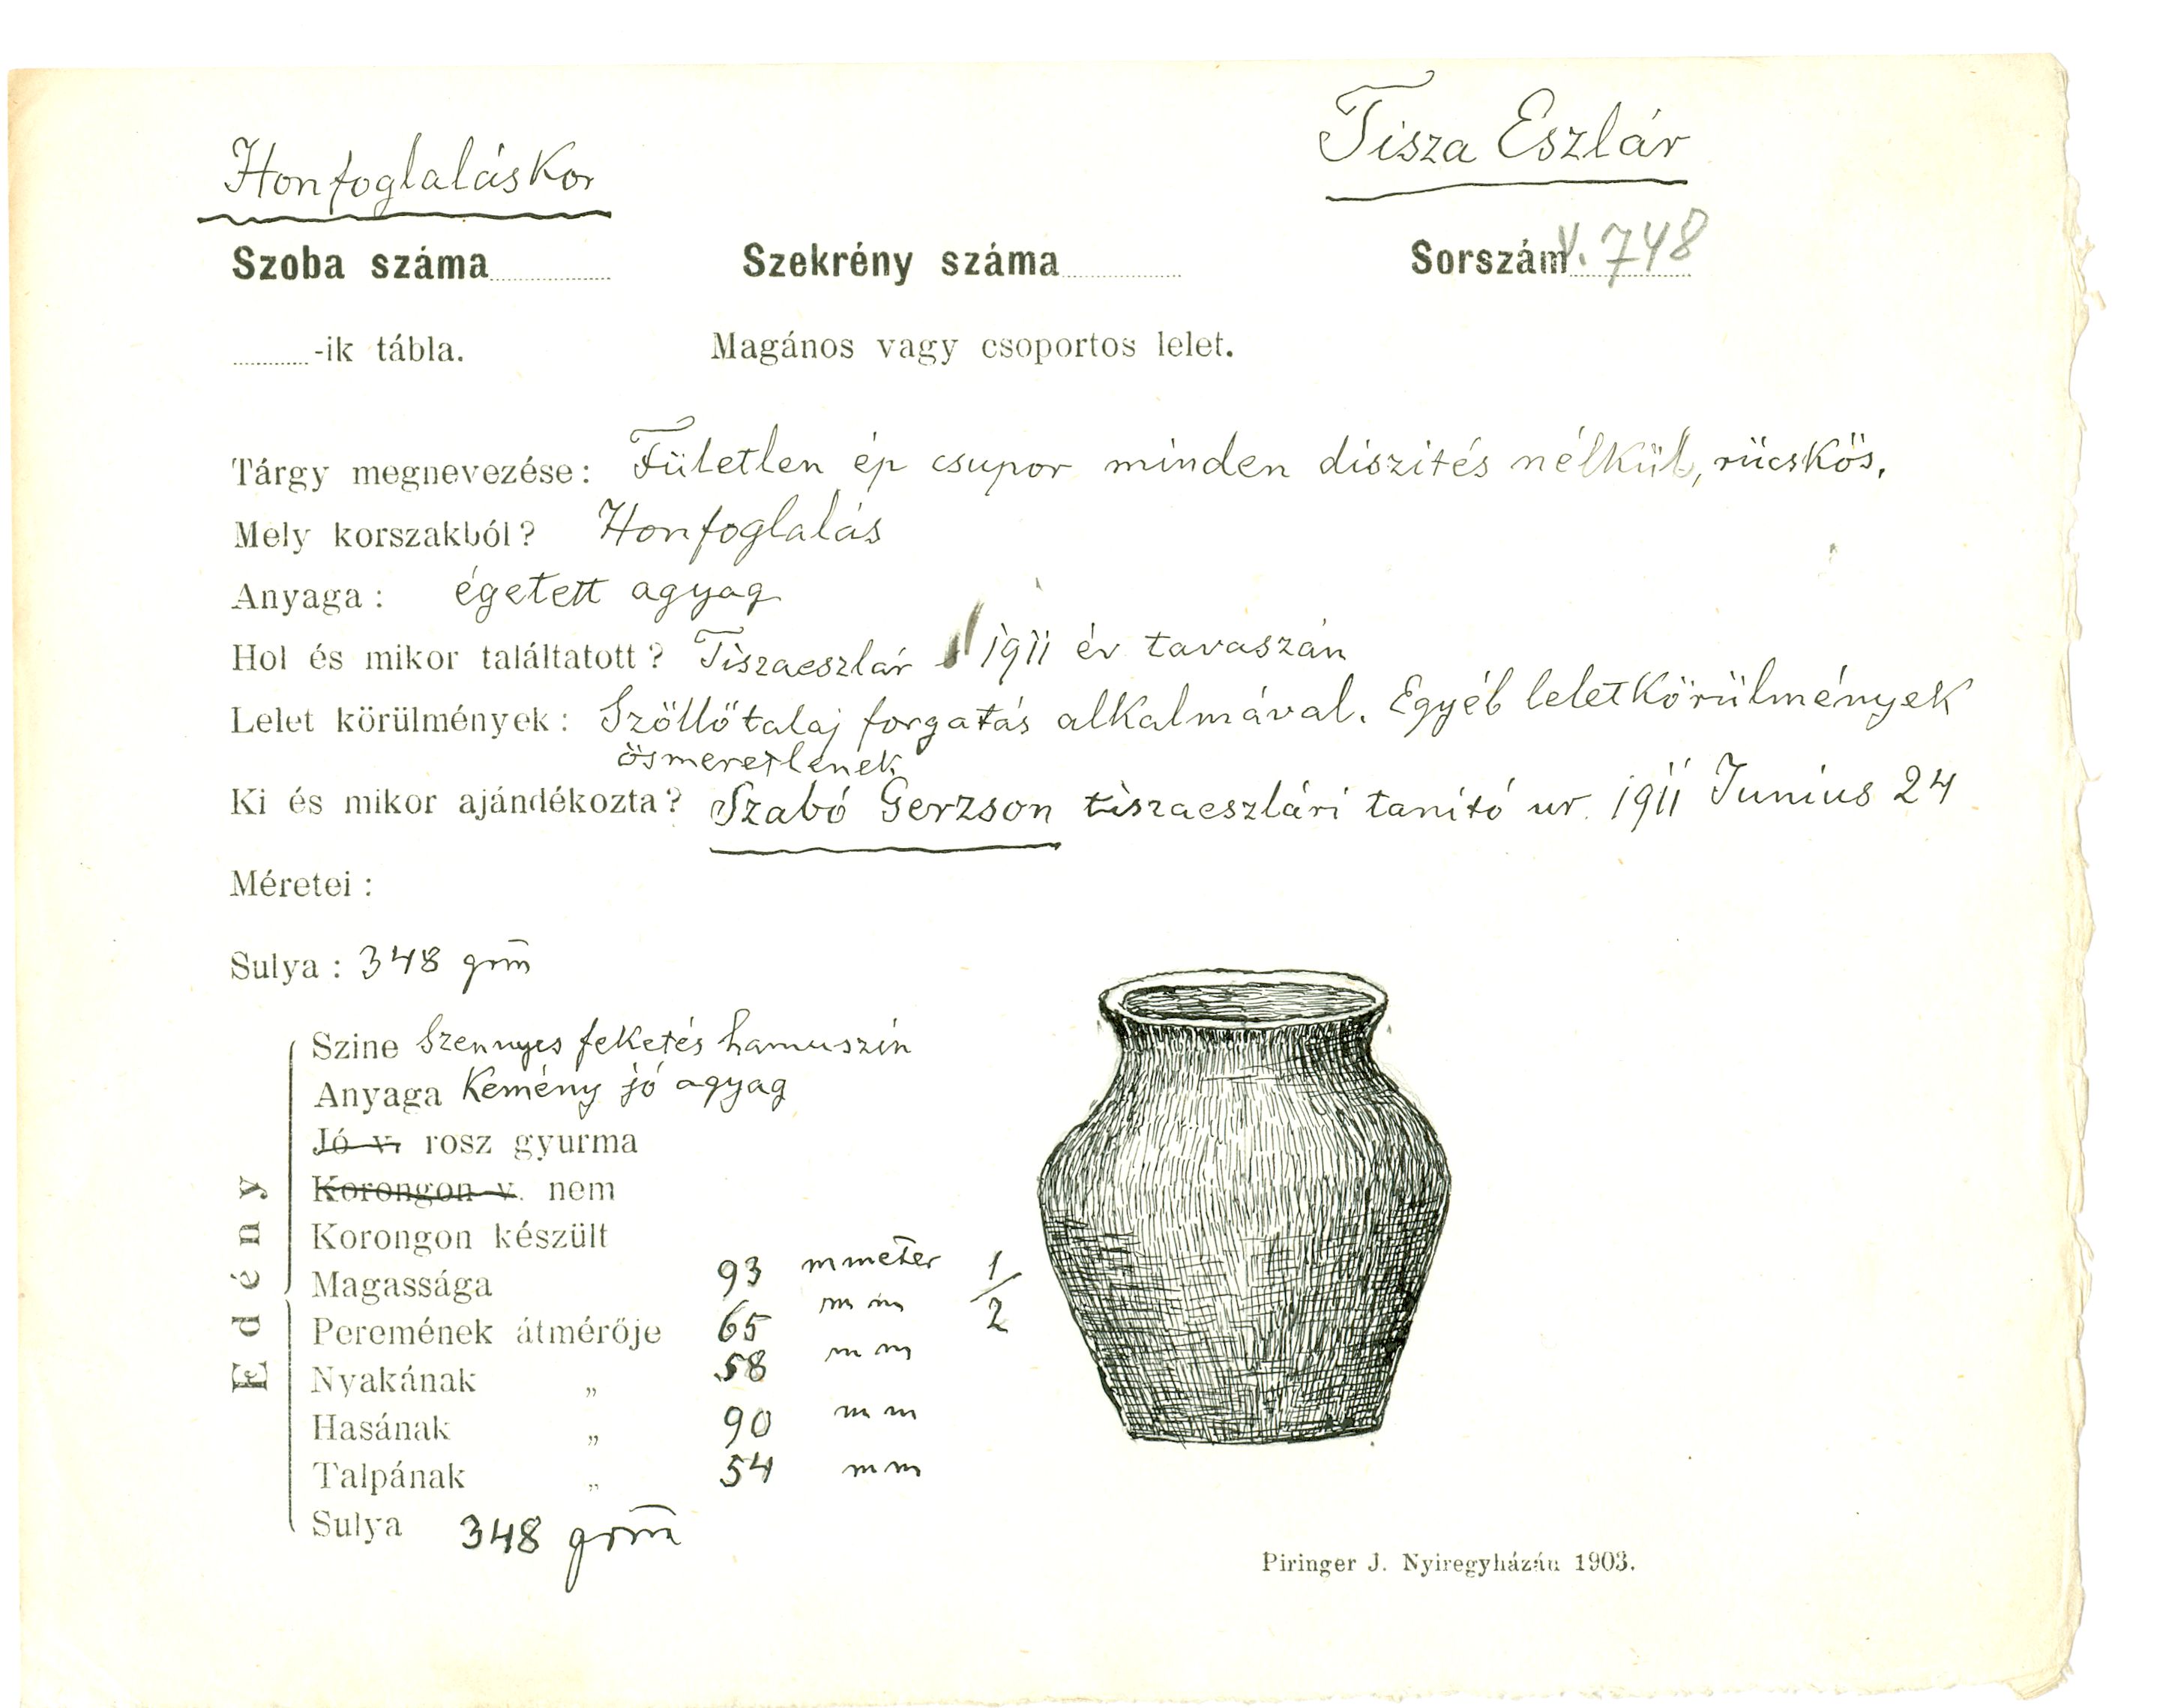 Tisza Eszlár
Honfoglaláskor
Szoba száma Szekrény száma Sorszám V. 748
-ik tábla. Magános vagy csoportos lelet.
Tárgy megnevezése: Fületlen ép csupor minden diszités nélkül, rücskös.
Mely korszakból? Honfoglalás
Anyaga: égetett agyag
Hol és mikor találtatott? Tiszaeszlár 1911 év tavaszán
Lelet körülmények: Szöllőtalaj forgatás alkalmával. Egyéb leletkörülmények
ösmeretlenek
Ki és mikor ajándékozta? Szabó Gerzson tiszaeszlári tanító ur. 1911 Junius 24
Méretei:
Sulya: 348 grm
Edény
Szine Szennyes feketés hamuszin
Anyaga Kemény jó agyag
Jó v. rosz gyurma
Korongon v. nem
Korongon készült
Magassága 93 mmeter
Peremének átmérője 65 mm
Nyakának „ 58 mm
Hasának „ 90 mm
Talpának „ 54 mm
Sulya 348 grm
1/2
Piringer J. Nyiregyházán 1903.